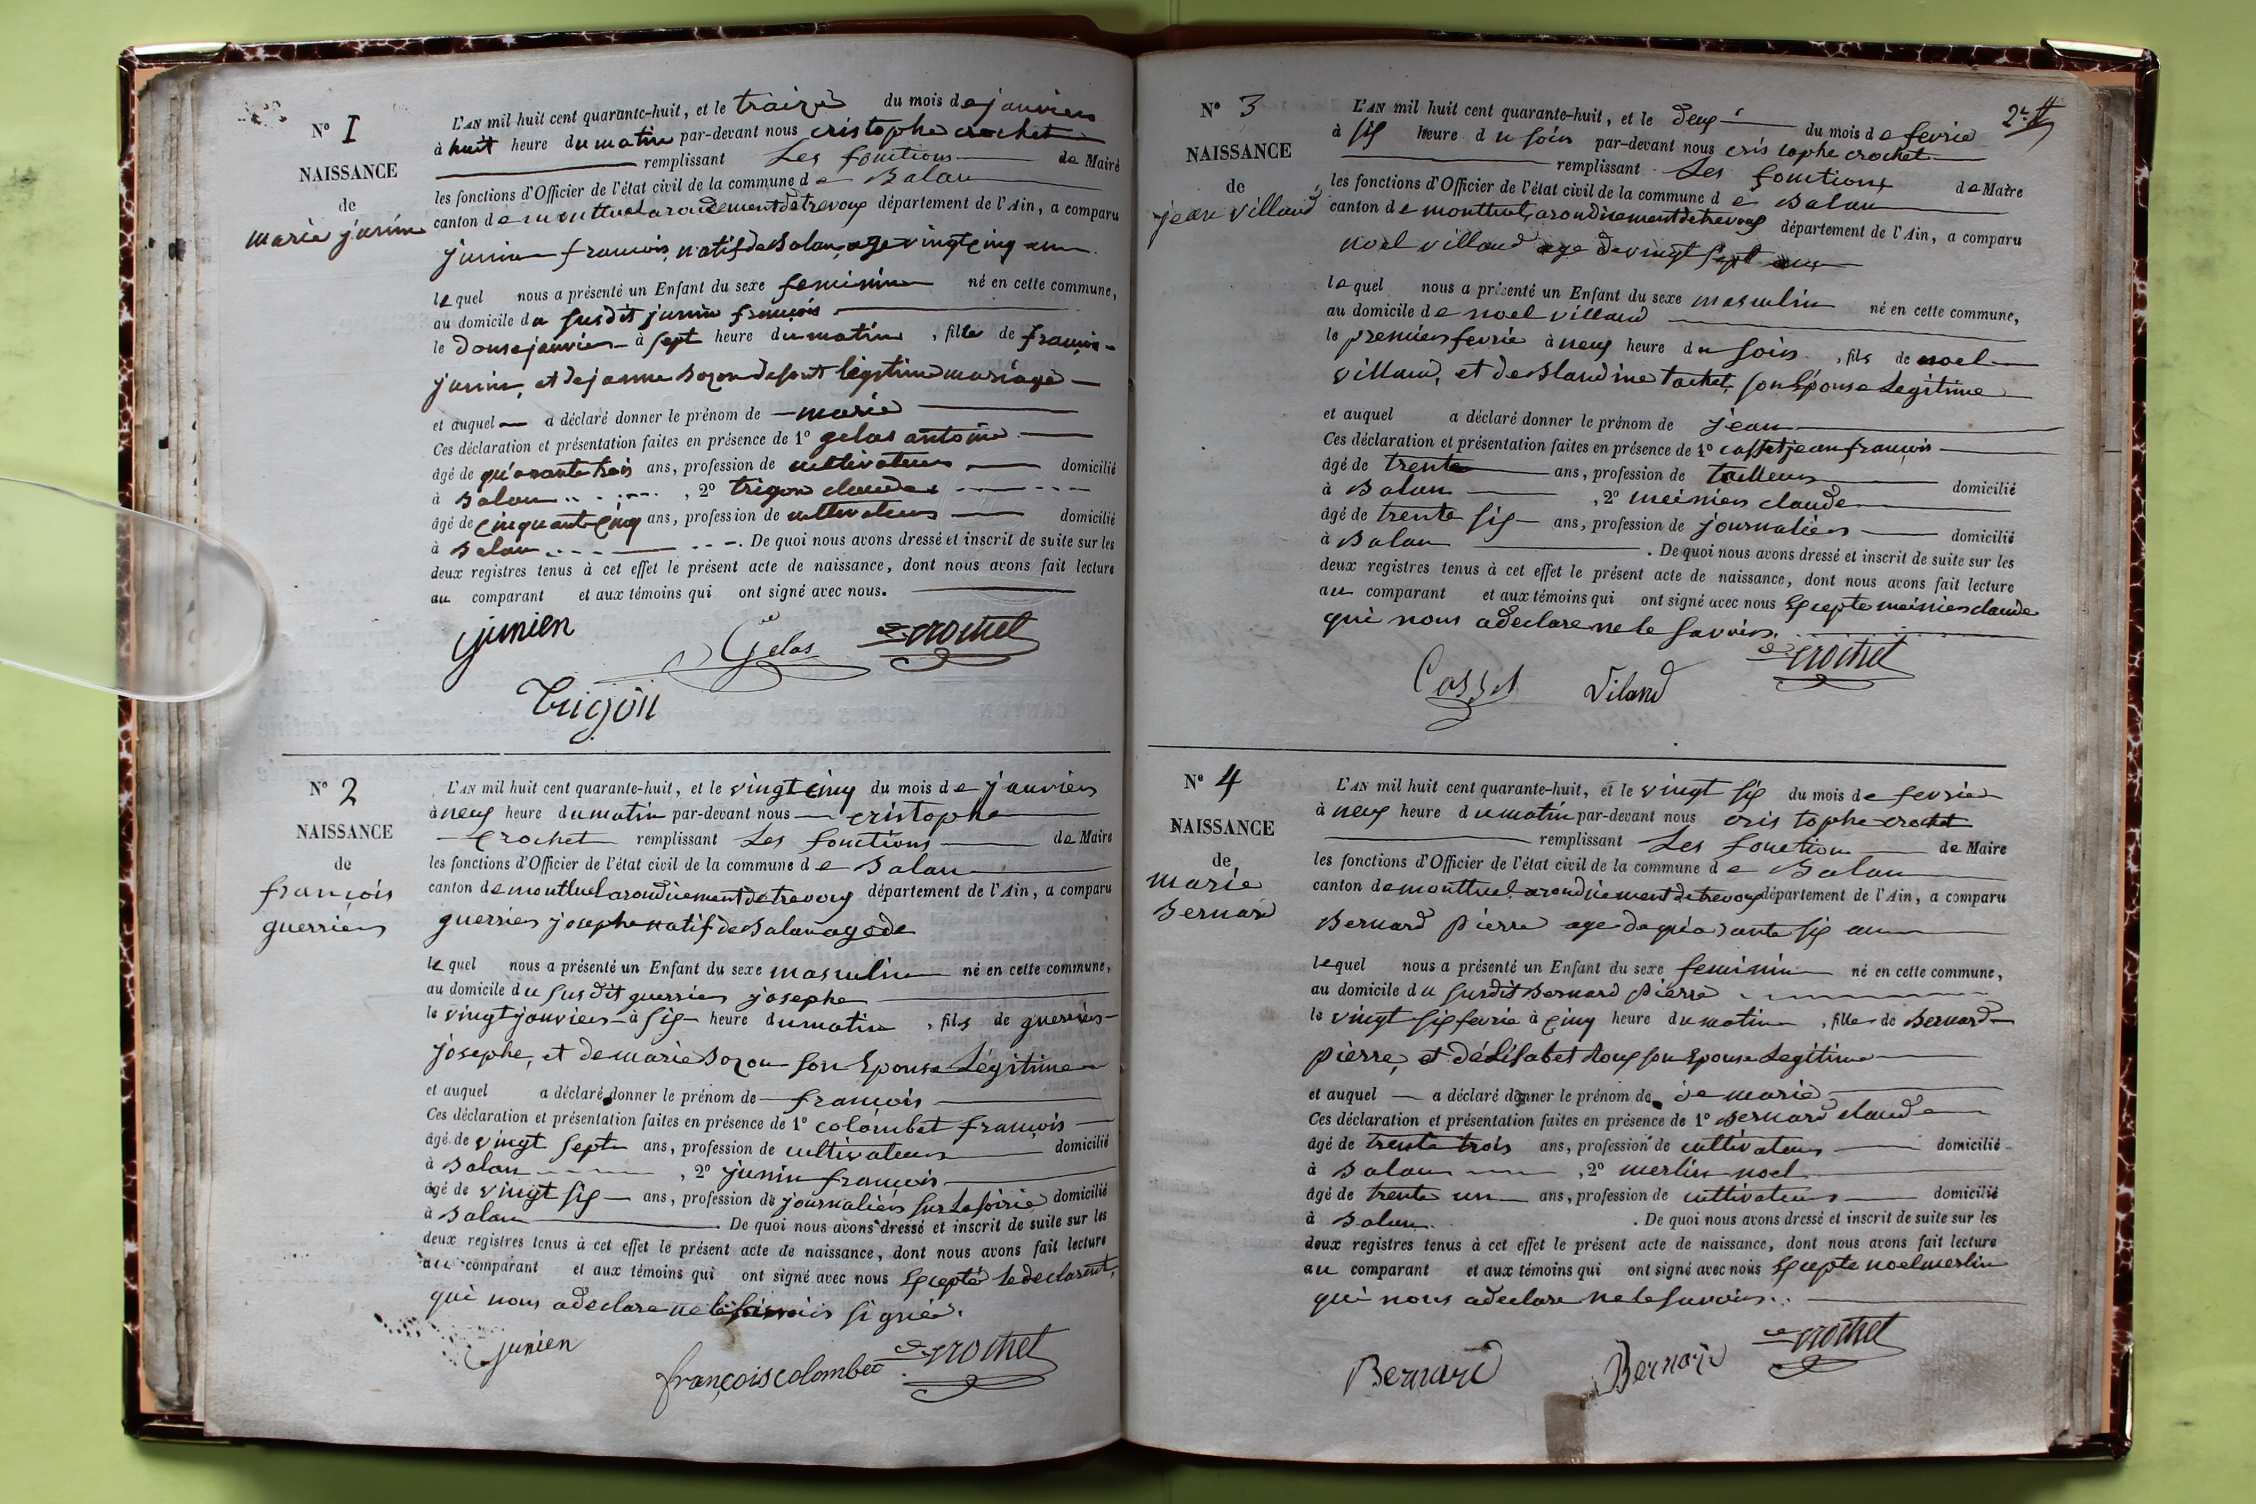 N° 1
NAISSANCE
de
marie junin
L'AN mil huit cent quarante-huit, et le traize du mois de janvier
à huit heure du matin par-devant nous cristophe crochet
remplissant Les fonctions de Maire
les fonctions d'Officier de l'état civil de la commune de Balan
canton de montluel arondicement de trevoux département de l'Ain, a comparu
junin francois, natif de Balan, age vingt cinq ans
lequel nous a présenté un Enfant du sexe feminin né en cette commune,
au domicile du susdit junin françois
le douse janvier à sept heure du matin, fille de françois
junin, et de jeanne Bozon de sont légitime mariage
et auquel a déclaré donner le prénom de marie
Ces déclaration et présentation faites en présence de 1° gelas antoine
âgé de quarante trois ans, profession de cultivateur domicilié
à Balan, 2° trigon claude
âgé de cinquante cinq ans, profession de cultivateur domicilié
à Balan. De quoi nous avons dressé et inscrit de suite sur les
deux registres tenus à cet effet le présent acte de naissance, dont nous avons fait lecture
au comparant et aux témoins qui ont signé avec nous.
junien Gelas crochet
Trigon
N° 2
NAISSANCE
de
françois
guerrier
L'AN mil huit cent quarante-huit, et le vingt cinq du mois de janvier
à neuf heure du matin par-devant nous cristophe
crochet remplissant Les fonctions de Maire
les fonctions d'Officier de l'état civil de la commune de Balan
canton de montluel arondicement de trevoux département de l'Ain, a comparu
guerrier josephe natif de Balan age de
lequel nous a présenté un Enfant du sexe masculin né en cette commune,
au domicile du susdit guerrier josephe
le vingt janvier à six heure du matin, fils de guerrier
josephe, et de marie Bozon son Epouse Légitime
et auquel a déclaré donner le prénom de françois
Ces déclaration et présentation faites en présence de 1° colombet françois
âgé de vingt sept ans, profession de cultivateur domicilié
à Balan, 2° junin françois
âgé de vingt six ans, profession de journalier domicilié
à Balan. De quoi nous avons dressé et inscrit de suite sur les
deux registres tenus à cet effet le présent acte de naissance, dont nous avons fait lecture
au comparant et aux témoins qui ont signé avec nous Excepté le declarent,
qui nous a declare ne le signié.
junien françois colombet crochet
2e
N° 3
NAISSANCE
de
jean villand
L'AN mil huit cent quarante-huit, et le deux du mois de fevrie
à six heure du soir par-devant nous cristophe crochet
remplissant Les fonctions de Maire
les fonctions d'Officier de l'état civil de la commune de Balan
canton de montluel, arondicement de trevoux département de l'Ain, a comparu
noel villand age de vingt sept ans
lequel nous a présenté un Enfant du sexe masculin né en cette commune,
au domicile de noel villand
le premier fevrie à neuf heure du soir, fils de noel
villand, et de Blandine tachet, son Epouse Legitime
et auquel a déclaré donner le prénom de jean
Ces déclaration et présentation faites en présence de 1° casset jean françois
âgé de trente ans, profession de tailleur domicilié
à Balan, 2° meinier claude
âgé de trente six ans, profession de journalier domicilié
à Balan. De quoi nous avons dressé et inscrit de suite sur les
deux registres tenus à cet effet le présent acte de naissance, dont nous avons fait lecture
au comparant et aux témoins qui ont signé avec nous Excepte meinier claude
qui nous a declare ne le savoir.
Casset Viland crochet
N° 4
NAISSANCE
de
marie
Bernard
L'AN mil huit cent quarante-huit, et le vingt six du mois de fevrie
à neuf heure du matin par-devant nous cristophe crochet
remplissant Les fonction de Maire
les fonctions d'Officier de l'état civil de la commune de Balan
canton de montluel arondicement de trevoux département de l'Ain, a comparu
Bernard pierre age de quarante six ans
lequel nous a présenté un Enfant du sexe feminin né en cette commune,
au domicile du susdit Bernard pierre
le vingt six fevrie à cinq heure du matin, fille de Bernard
pierre, et d'élisabet Roux son Epouse Legitime
et auquel a déclaré donner le prénom de de marie
Ces déclaration et présentation faites en présence de 1° Bernard claude
âgé de trente trois ans, profession de cultivateur domicilié
à Balan, 2° merlin noel
âgé de trente un ans, profession de cultivateur domicilié
à Balan. De quoi nous avons dressé et inscrit de suite sur les
deux registres tenus à cet effet le présent acte de naissance, dont nous avons fait lecture
au comparant et aux témoins qui ont signé avec nous Excepte noel merlin
qui nous a declare ne le savoir.
Bernard Bernard crochet